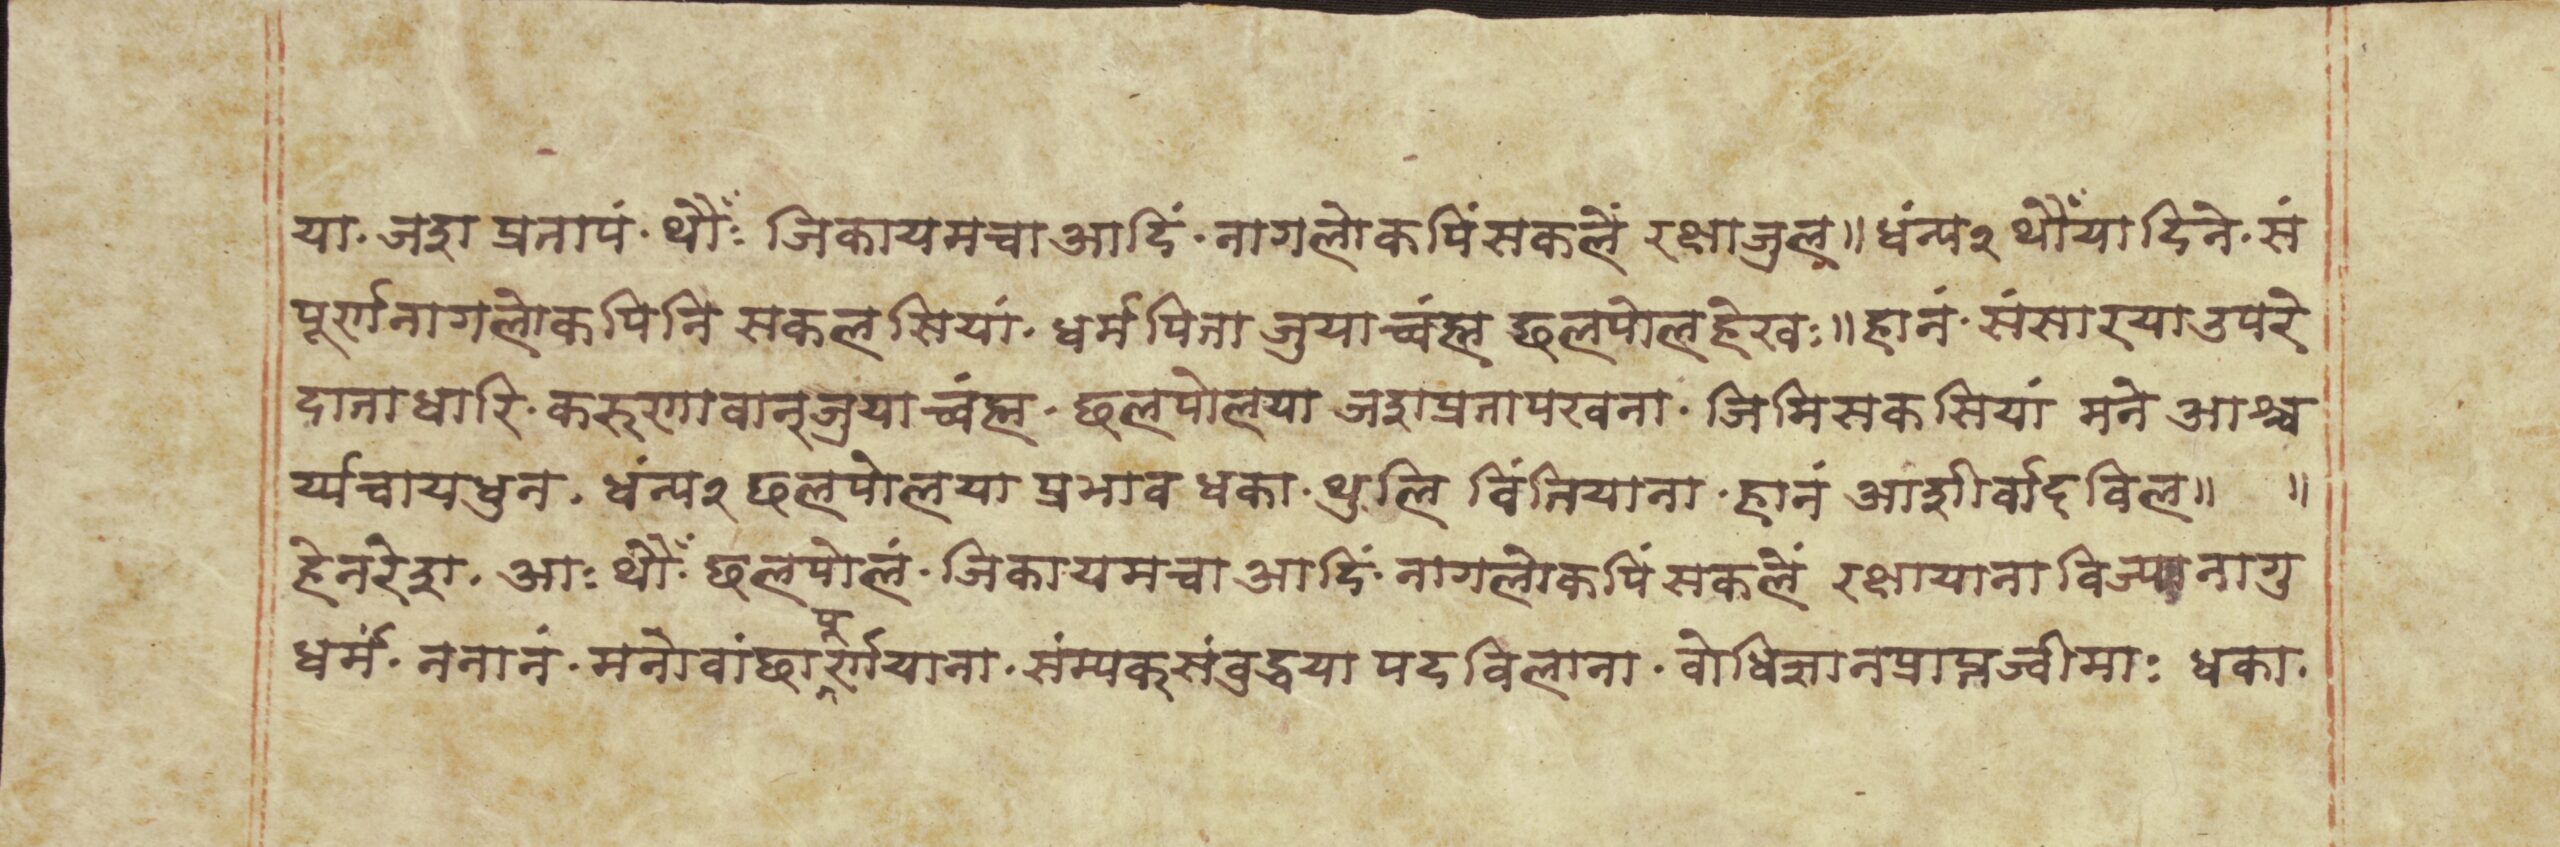 या· जश प्रतापं· थौंः जिकायमचा आदिं· नागलोकपिंसकलें रक्षाजुल॥ धंन्य२ थौंया दिने· सं
पूर्णनागलोकपिनि सकलसियां· धर्मपिता जुयाच्वंह्म छलपोलहेखः॥ हानं· संसारया उपरे
दाताधारि· करुणावान्जुयाच्वंह्म· छलपोलया जशप्रतापखना· जिमिसकसियां मने आश्च
र्य्यचायधुन· धंन्य२ छलपोलया प्रभाव धका· थुलि विंतियाना· हानं आशीर्वादविल॥ ॥
हेनरेश· आः थौंः छलपोलं· जिकायमचा आदिं· नागलोकपिं सकलें रक्षायाना विज्यानागु
धर्मं· ननानं· मनोवांछा पूर्णयाना· संम्यक्संवुद्धया पद विलाना· वोधिज्ञानप्राप्तज्वीमाः धका·